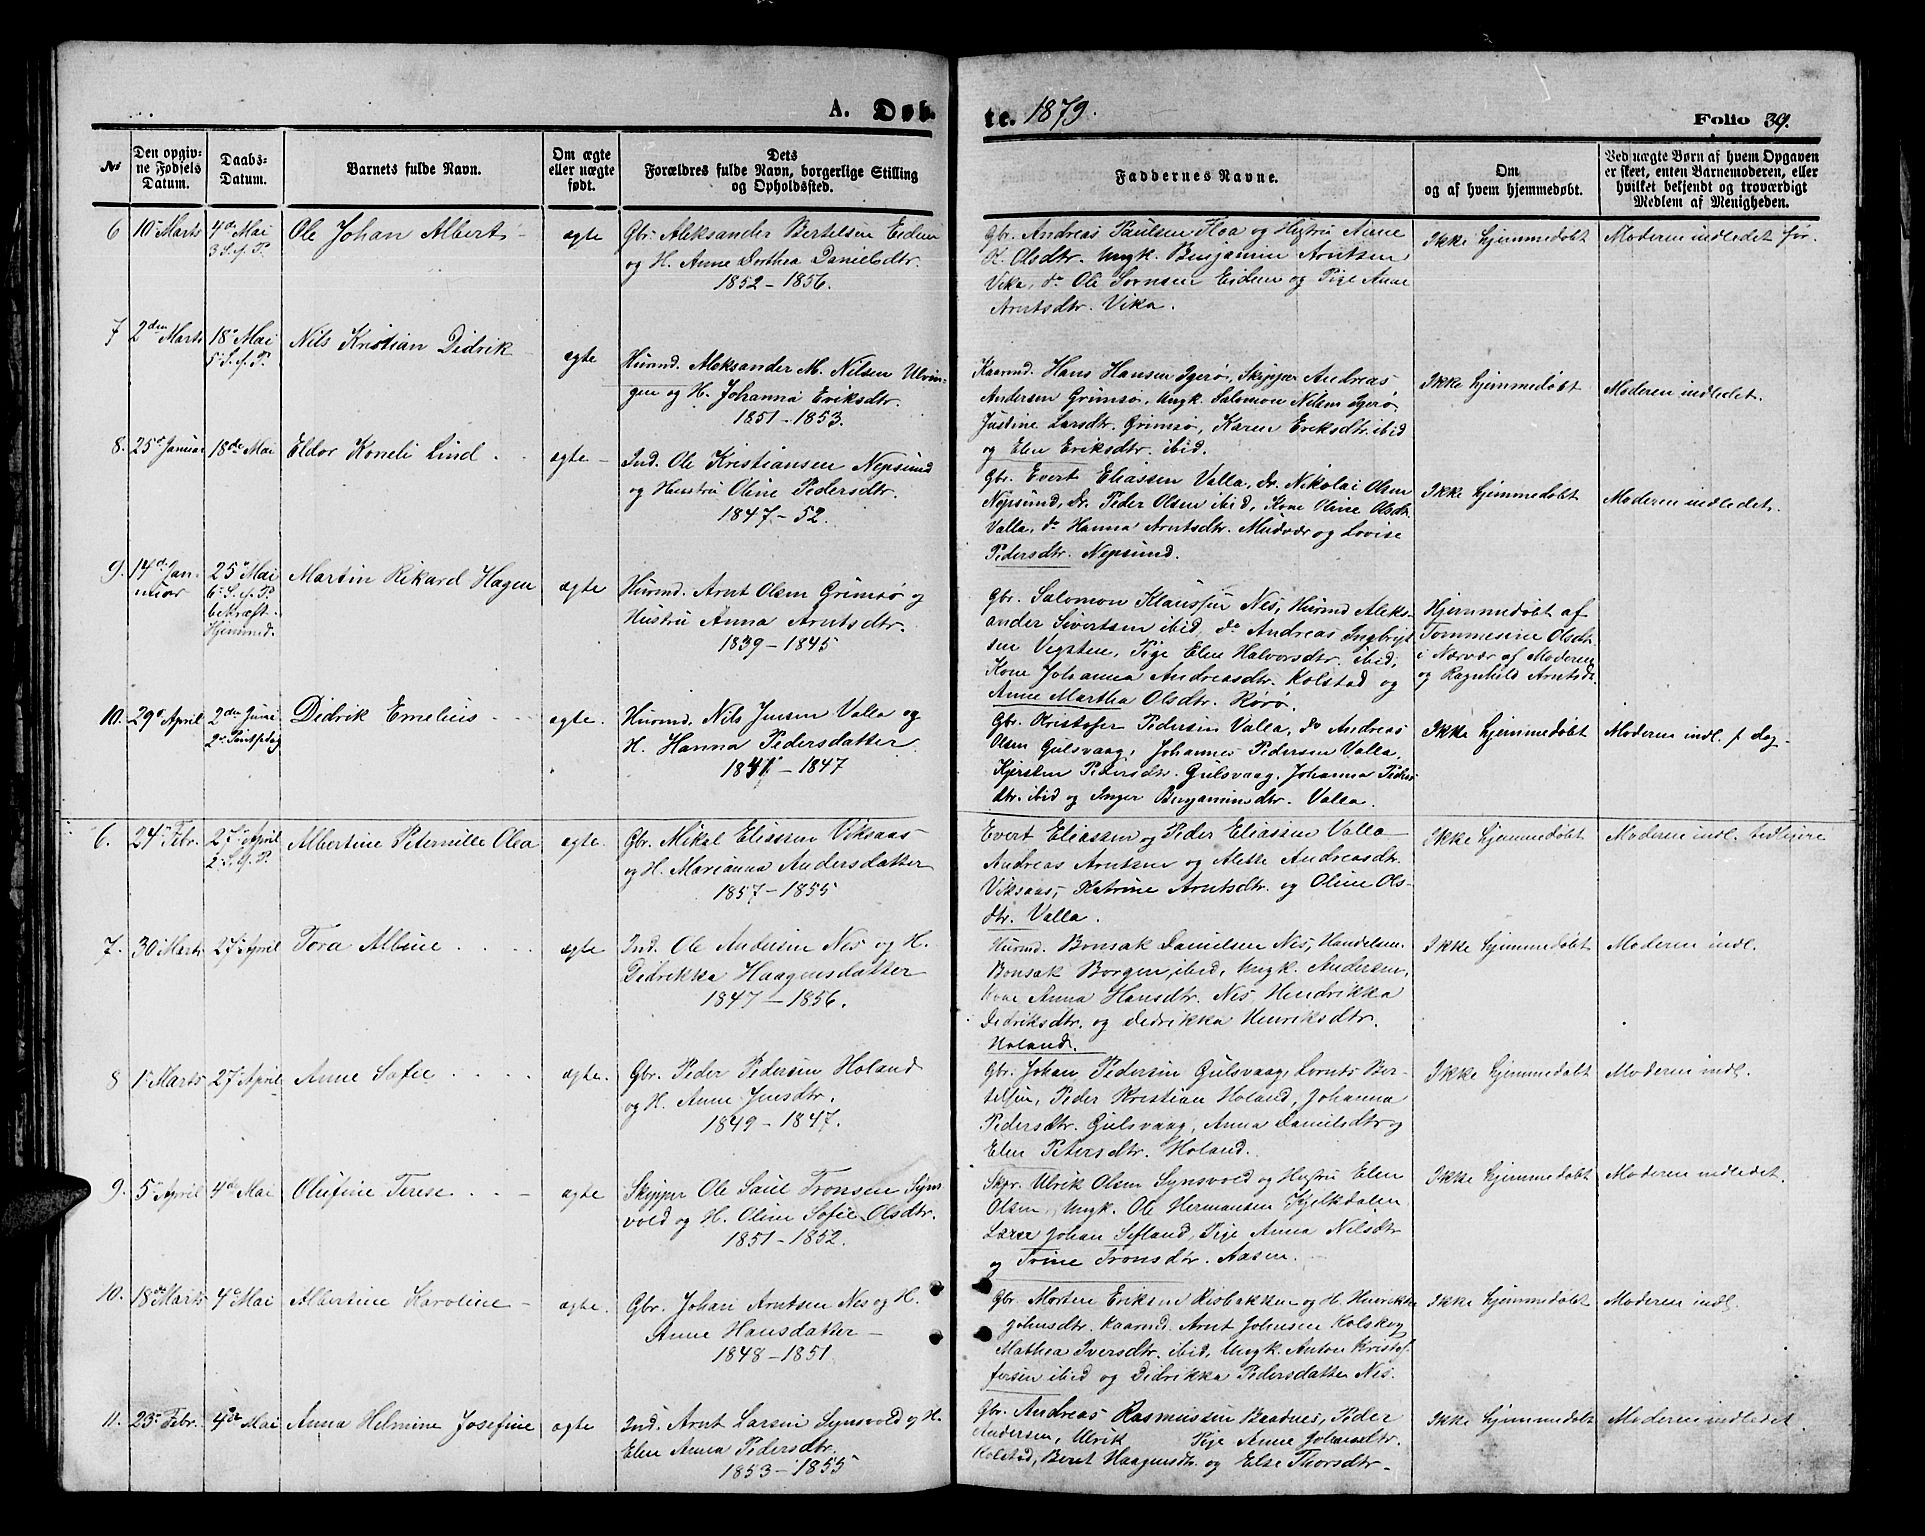 A. Døbte. 1879. Folio 39.
No
Den opgivne Fødsels Datum.
Daabs-Datum.
Barnets fulde Navn.
Om ægte eller uægte født.
Dets Forældres fulde Navn, borgerlige Stilling og Opholdssted.
Faddernes Navne.
Om og af hvem hjemmedøbt.
Ved uægte Børn af hvem Opgaven er skeet, enten Barnemoderen, eller hvilket bekjendt og troværdigt Medlem af Menigheden.
6 10 Marts 4de Mai 3 S. e. P. Ole Johan Albert ægte
Gbr. Aleksander Bertelsen Eidem
og H. Anne Dorthea Danielsdtr.
1852 - 1856.
Gbr. Andreas Paulsen Floa og Hustru Anne
O. Olsdtr. Ungk. Benjamin Arntsen
Vika, do Ole Sørnsen Eidem og Pige Anne
Arntsdtr. Vika.
Ikke hjemmedøbt
Moderen indledet før.
7 2den Marts 18 Mai 5 S. e. P. Nils Kristian Didrik ægte
Huusmd. Aleksander M. Nilsen Ulvin-
gen og H. Johanna Eriksdtr.
1851 - 1853.
Kaarmd. Hans Hansen Igerø, Skipper Andreas
Andersen Grimsø, Ungk. Salomon Nilsen Igerø,
Justine Larsdtr. Grimsø, Karen Eriksdtr. ibid
og Elen Eriksdtr. ibid.
Ikke hjemmedøbt
Moderen indledet.
8. 25 Januar 18de Mai Eldor Koneli Lind ægte
Ind. Ole Kristiansen Nepsund
og Hustru Oline Pedersdtr.
1847 - 52.
Gbr. Evert Eliassen Valla, do. Nikolai Olsen
Nepsund, do. Peder Olsen ibid, Kone Oline Olsdtr.
Valla, do Hanna Arntsdtr. Mudvær og Lovise
Pedersdtr. Nepsund.
Ikke hjemmedøbt
Moderen indledet.
9. 14de Januar 25 Mai 6 S. e. P. bekræft. Hjemmed. Martin Rikard Hagen ægte
Huusmd. Arnt Olsen Grimsø og
Hustru Anna Arntsdtr.
1839 - 1845
Gbr. Salomon Klaussen Nes, Huusmd Aleks-
ander Sivertsen ibid, do Andreas Ingbrigt
sen Vegsten, Pige Elen Halvorsdtr. ibid,
Kone Johanna Andreasdtr. Kolstad og
Anne Martha Olsdtr. Rørø.
Hjemmedøbt af
Tommesine Olsdtr.
i Nærvær af Moderen
og Ragnhild Arntsdtr.
10. 29 April 2den Juni 2 Pintsedag Didrik Emelius ægte.
Huusmd. Nils Jensen Valla og
H. Hanna Pedersdatter
1841 - 1847
Gbr. Kristofer Pedersen Valla, do Andreas
Olsen Gulsvaag, Johannes Pedersen Valla,
Kjersten Pedersdtr. Gulsvaag, Johanna Peders-
dtr. ibid og Inger Benjaminsdtr. Valla.
Ikke hjemmedøbt
Moderen indl. s. dag.
6. 24 Febr. 27 April 2 S. e. P. Albertine Peternille Olea ægte.
Gbr. Mikal Eliassen Viksaas
og H. Marianna Andersdatter
1857 - 1855
Evert Eliassen og Peder Eliassen Valla
Andreas Arntsen og Alette Andreasdtr.
Viksaas, Katrine Arntsdtr. og Oline Ols-
dtr. Valla.
Ikke hjemmedøbt
Moderen indl. tidligere
7. 30 Marts 27 April Tora Albine ægte
Ind. Ole Andersen Nes og H.
Didrikka Haagensdatter
1847 - 1856.
Huusmd. Bonsak Danielsen Nes, Handelsm.
Bonsak Borgen, ibid, Ungk. Andersen,
Kone Anna Hansdtr. Nes, Hendrikka
Didriksdtr. og Didrikka Henriksdtr.
Holand.
Ikke hjemmedøbt
Moderen indl.
8 1 Marts 27 April Anne Sofie ægte.
Gbr. Peder Pedersen Holand
og H. Anne Jensdtr.
1849 - 1847.
Gbr. Johan Pedersen Gulsvaag, Lornts Ber-
telsen, Peder Kristian Holand, Johanna
Pedersdtr. Gulsvaag, Anna Danielsdtr og
Elen Petersdtr. Holand.
Ikke hjemmedøbt
Moderen indl.
9. 5 April 4de Mai Olufine Terese ægte
Skipper Ole Saul Tronsen Syns-
vold og H. Oline Sofie Olsdtr.
1851 - 1852.
Skpr. Ulrik Olsen Synsvold og Hustru Elen
Olsen, Ungk. Ole Hermansen Kjelkdalen
Johan Sefland, Pige Anna Nilsdtr
og Trine Tronsdtr. Aasen.
Ikke hjemmedøbt
Moderen indledet.
10. 18de Marts 4 Mai Albertine Karoline ægte.
Gbr. Johan Arntsen Nes og H.
Anne Hansdatter
1848 - 1851.
Gbr Morten Eriksen Risbakken og H. Henrikke
Johnsdtr. Kaarmd. Arnt Johnsen Kolskog
Mathea Iversdtr. ibid, Ungk. Anton Kristof-
fersen ibid og Didrikka Pedersdatter Nes.
Ikke hjemmedøbt
Moderen indl.
11. 23 Febr. 4de Mai Anna Helmine Josefine ægte
Ind. Arnt Larsen Synsvold og H.
Elen Anna Pedersdtr.
1853 - 1855
Gbr. Andreas Rasmussen Baadnes, Peder
Andersen, Ulrik Pige Anne Johansdtr.
Kolstad, Beret Haagensdtr og Else Thorsdtr
Ikke hjemmedøbt
Moderen indledet